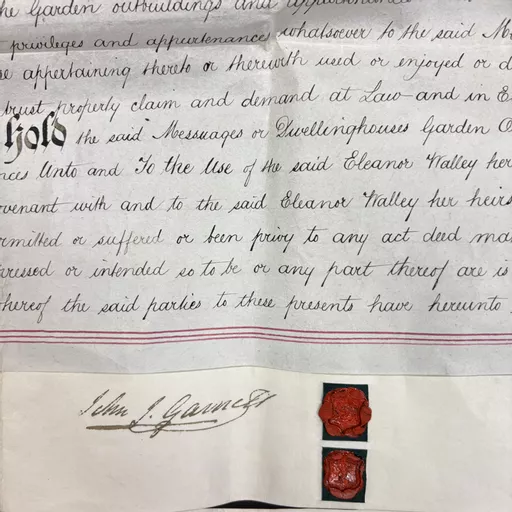 he Garden outbuildings and appurtenances
privileges and appurtenances whatsoever to the said M
se appertaining thereto or therewith used or enjoyed or d
trust property claim and demand at Law and in E
hold the said Messuages or Dwellinghouses Garden O
nces Unto and To the Use of the said Eleanor Walley her
venant with and to the said Eleanor Walley her heirs
rmitted or suffered or been privy to any act deed ma
pressed or intended so to be or any part thereof are is
hereof the said parties to these presents have hereunto
John J. Garnett